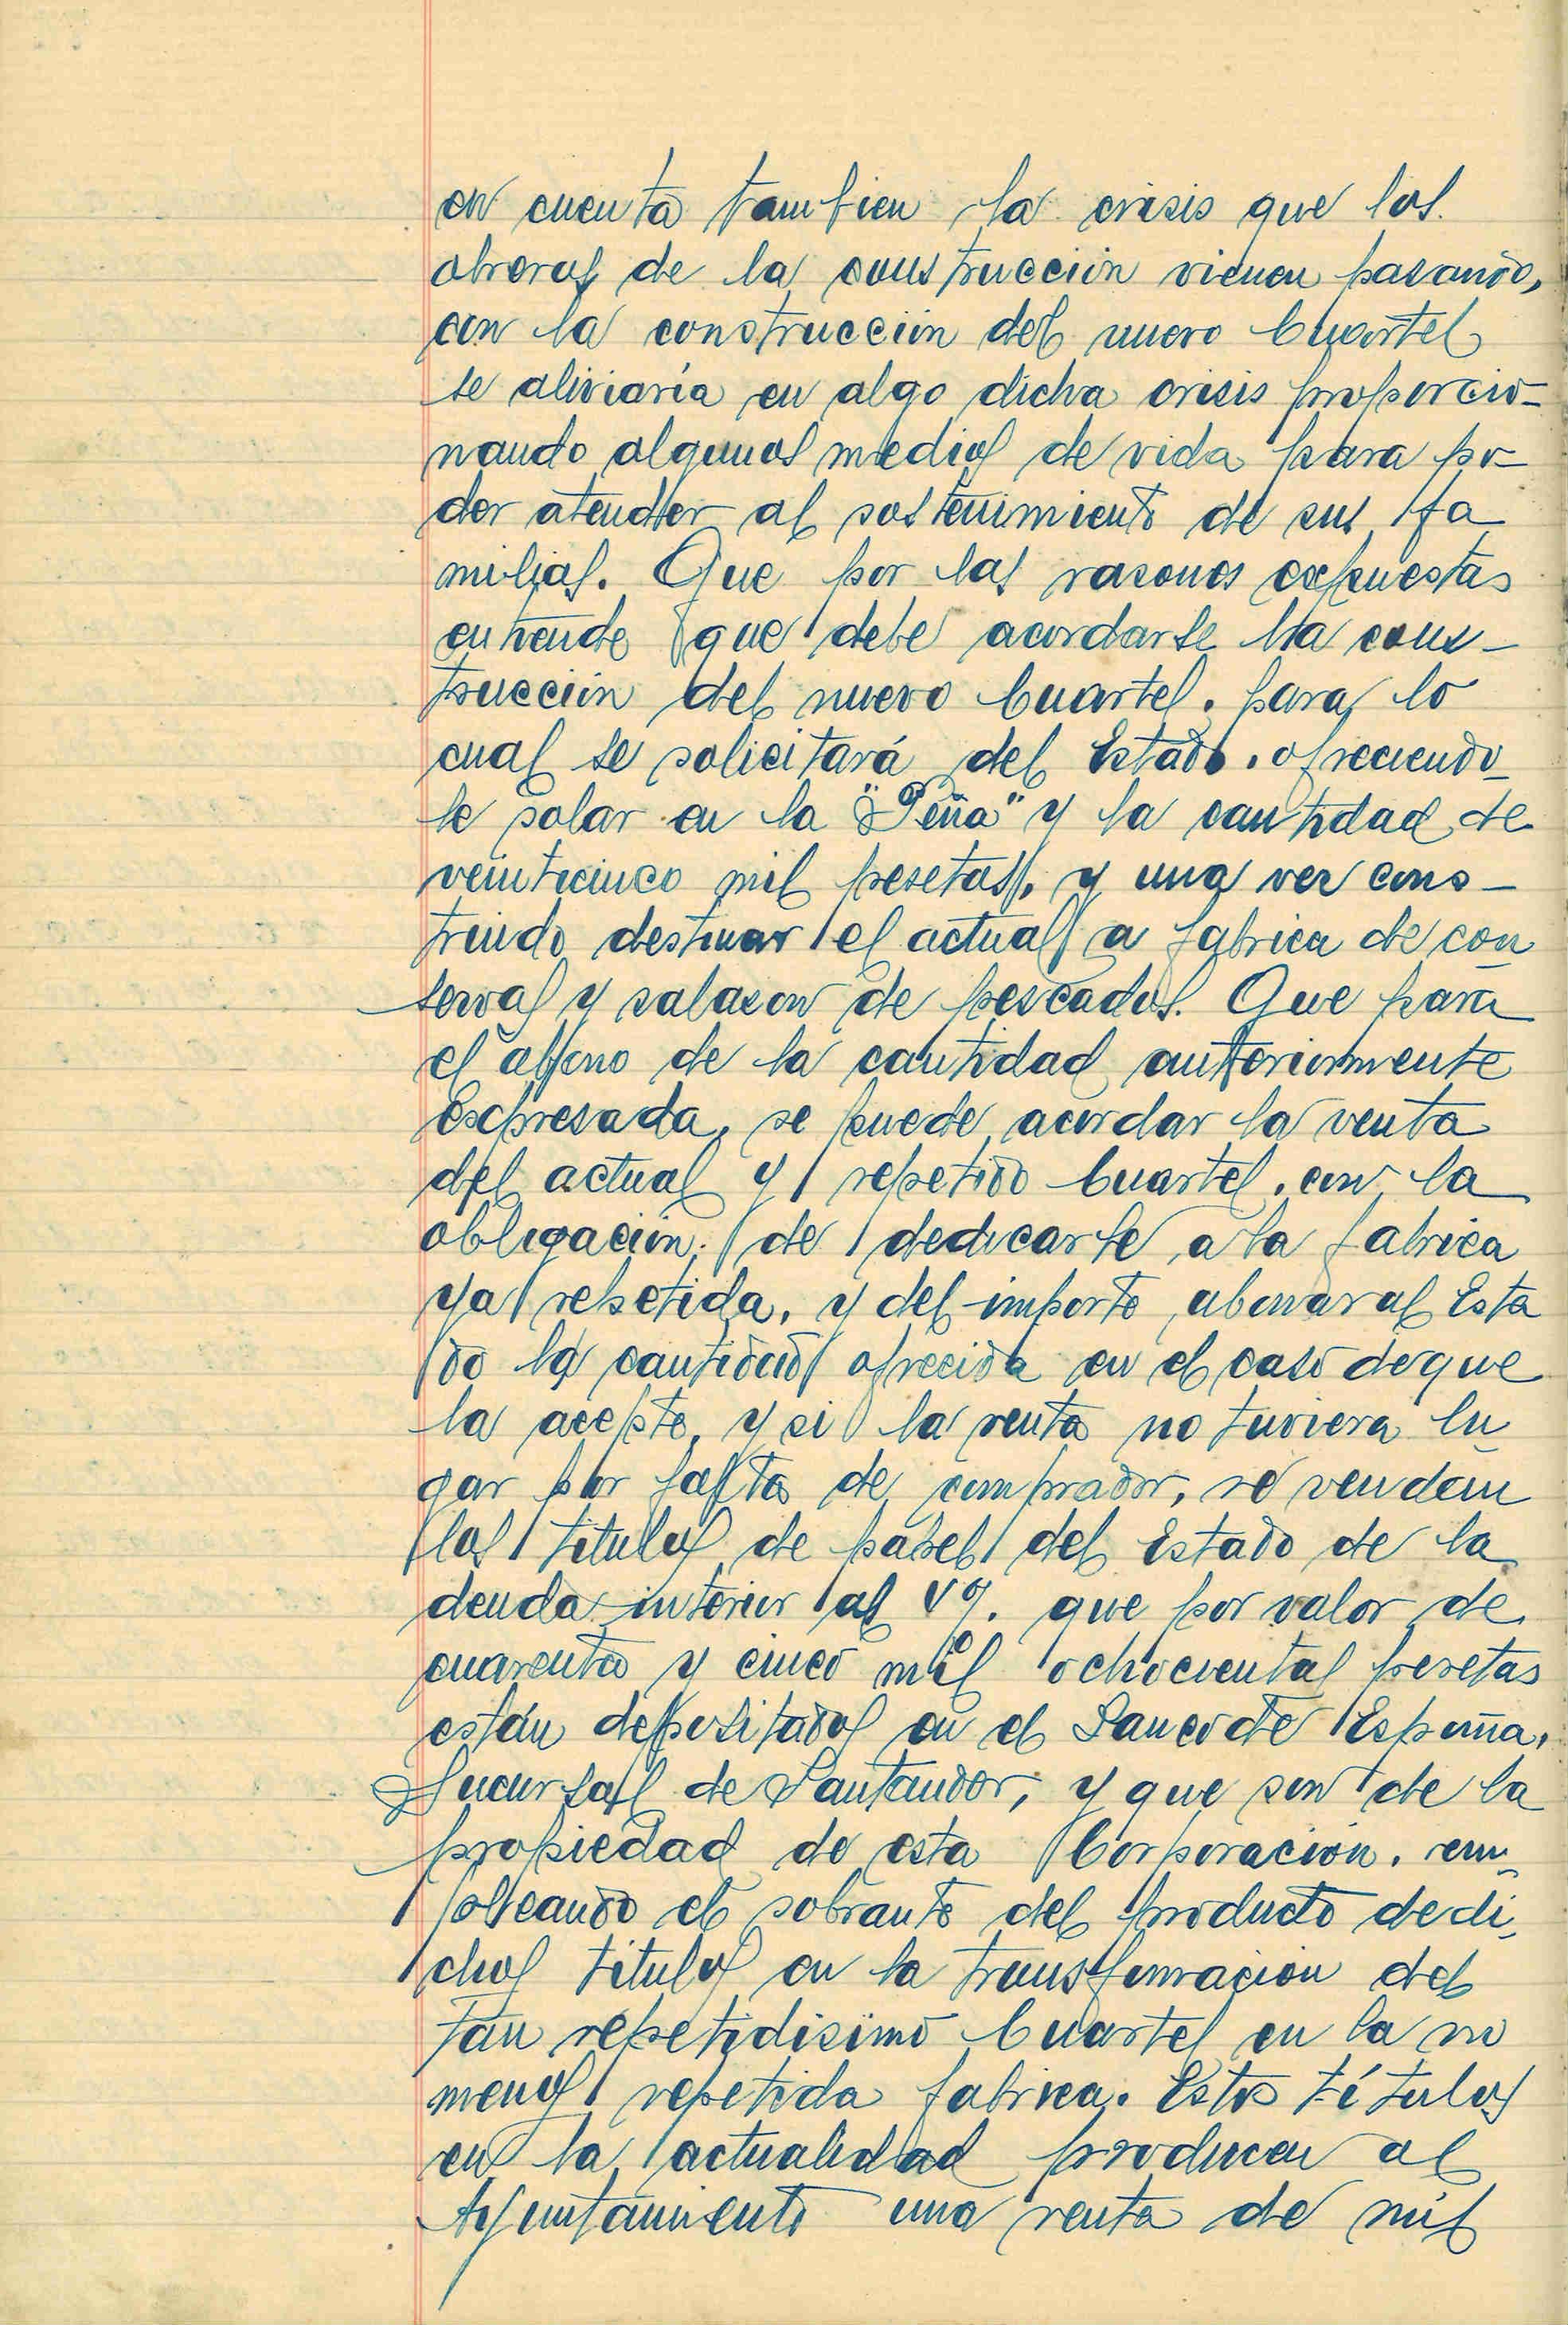 en cuenta tambien la crisis que los
obreros de la construcción vienen pasando,
con la construcción del nuevo Cuartel
se aliviaría en algo dicha crisis proporcio-
nando algunos medios de vida para po-
der atender al sostenimiento de sus fa
milias. Que por las rasones expuestas
entiende que debe acordarse la cons-
trucción del nuevo Cuartel, para lo
cual se solicitará del Estado, ofreciendo-
le solar en la "Peña" y la cantidad de
veinticinco mil pesetas, y una vez cons-
truido destinar el actual a fabrica de con
servas y salazon de pescados. Que para
el abono de la cantidad anteriormente
expresada, se puede acordar la venta
del actual y repetido Cuartel, con la
obligación, de dedicarse a la fabrica
ya repetida, y del importe, abonar al Esta
do la cantidad ofrecida en el caso de que
la acepte, y si la venta no tuviera lu
gar por falta de comprador, se vendan
los titulos de papel del Estado de la
deuda interior al 4%. que por valor de
cuarenta y cinco mil ochocientas pesetas
están depositados en el Banco de España,
Sucursal de Santander, y que son de la
propiedad de esta Corporación, em
pleando el sobrante del producto de di
chos titulos en la transformación del
tan repetidisimo Cuartel en la no
menos repetida fabrica. Estos títulos
en la actualidad producen al
Ayuntamiento una renta de mil